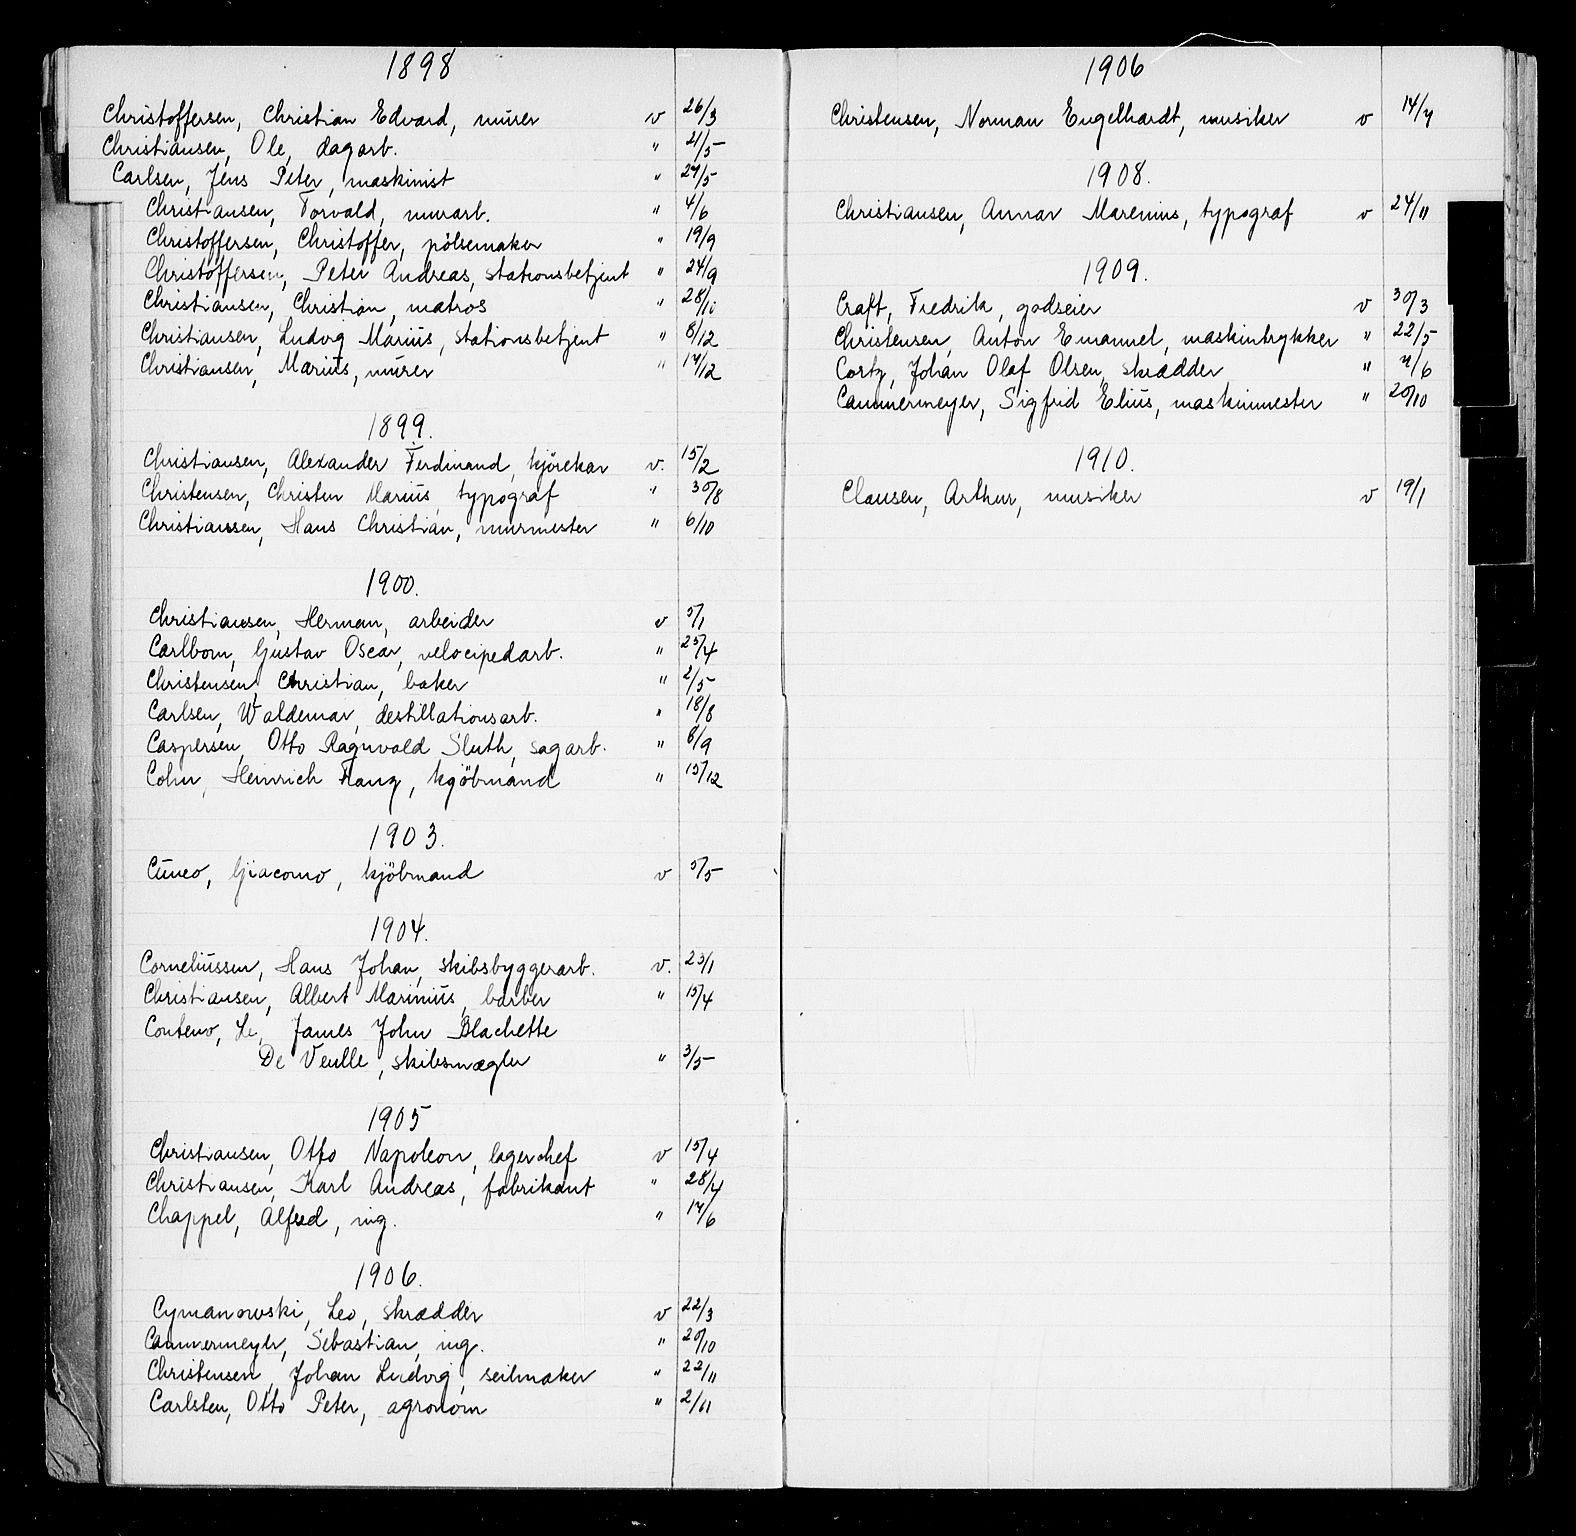 1898
Christoffersen, Christian Edvard, murer v 26/3
Christiansen, Ole, dagarb. " 21/5
Carlsen, Jens Peter, maskinist " 24/5
Christiansen, Torvald, murarb. " 4/6
Christoffersen, Christoffer, pölsemaker " 19/9
Christoffersen, Peter Andreas, stationsbetjent " 24/9
Christiansen, Christian, matros " 28/10
Christiansen, Ludvig Marius, stationsbetjent " 8/12
Christiansen, Marius, murer " 17/12
1899.
Christiansen, Alexander Ferdinand, kjörekar v. 15/2
Christensen, Christen Marius, typograf " 30/8
Christiansen, Hans Christian, murmester " 6/10
1900.
Christiansen, Herman, arbeider v 5/1
Carlbom, Gustav Oscar, velocipedarb. " 25/4
Christensen, Christian, baker " 2/5
Carlsen, Waldemar, destillationsarb. " 18/8
Caspersen, Otto Ragnvald Sluth, sagarb. " 8/9
Cohn, Heinrich Franz, kjöbmand " 15/12
1903.
Cuneo, Giacomo, kjöbmand v 5/5
1904.
Corneliussen, Hans Johan, skibsbyggerarb. v. 23/1
Christiansen, Albert Marinius, barber " 15/4
Conteno, Le, James John Blachette
De Veulle, skibsmægler " 3/5
1905
Christiansen, Otto Napoleon, lagerchef v 15/4
Christiansen, Karl Andreas, fabrikant " 28/4
Chappel, Alfred, ing. " 17/6
1906.
Cymanowski, Leo, skrædder v 22/3
Cammermeyer, Sebastian, ing. " 20/10
Christensen, Johan Ludvig, seilmaker " 22/11
Carlsten, Otto Peter, agronom " 2/11
1906
Christensen, Norman Engelhardt, musiker v 14/7
1908.
Christiansen, Annar Marenius, typograf v 24/11
1909.
Craft, Fredrik, godseier v 30/3
Christensen, Anton Emanuel, maskintrykker " 22/5
Cortz, Johan Olaf Olsen, skrædder " 7/6
Cammermeyer, Sigfrid Elius, maskinmester " 20/10
1910.
Clausen, Arthur, musiker v 19/1